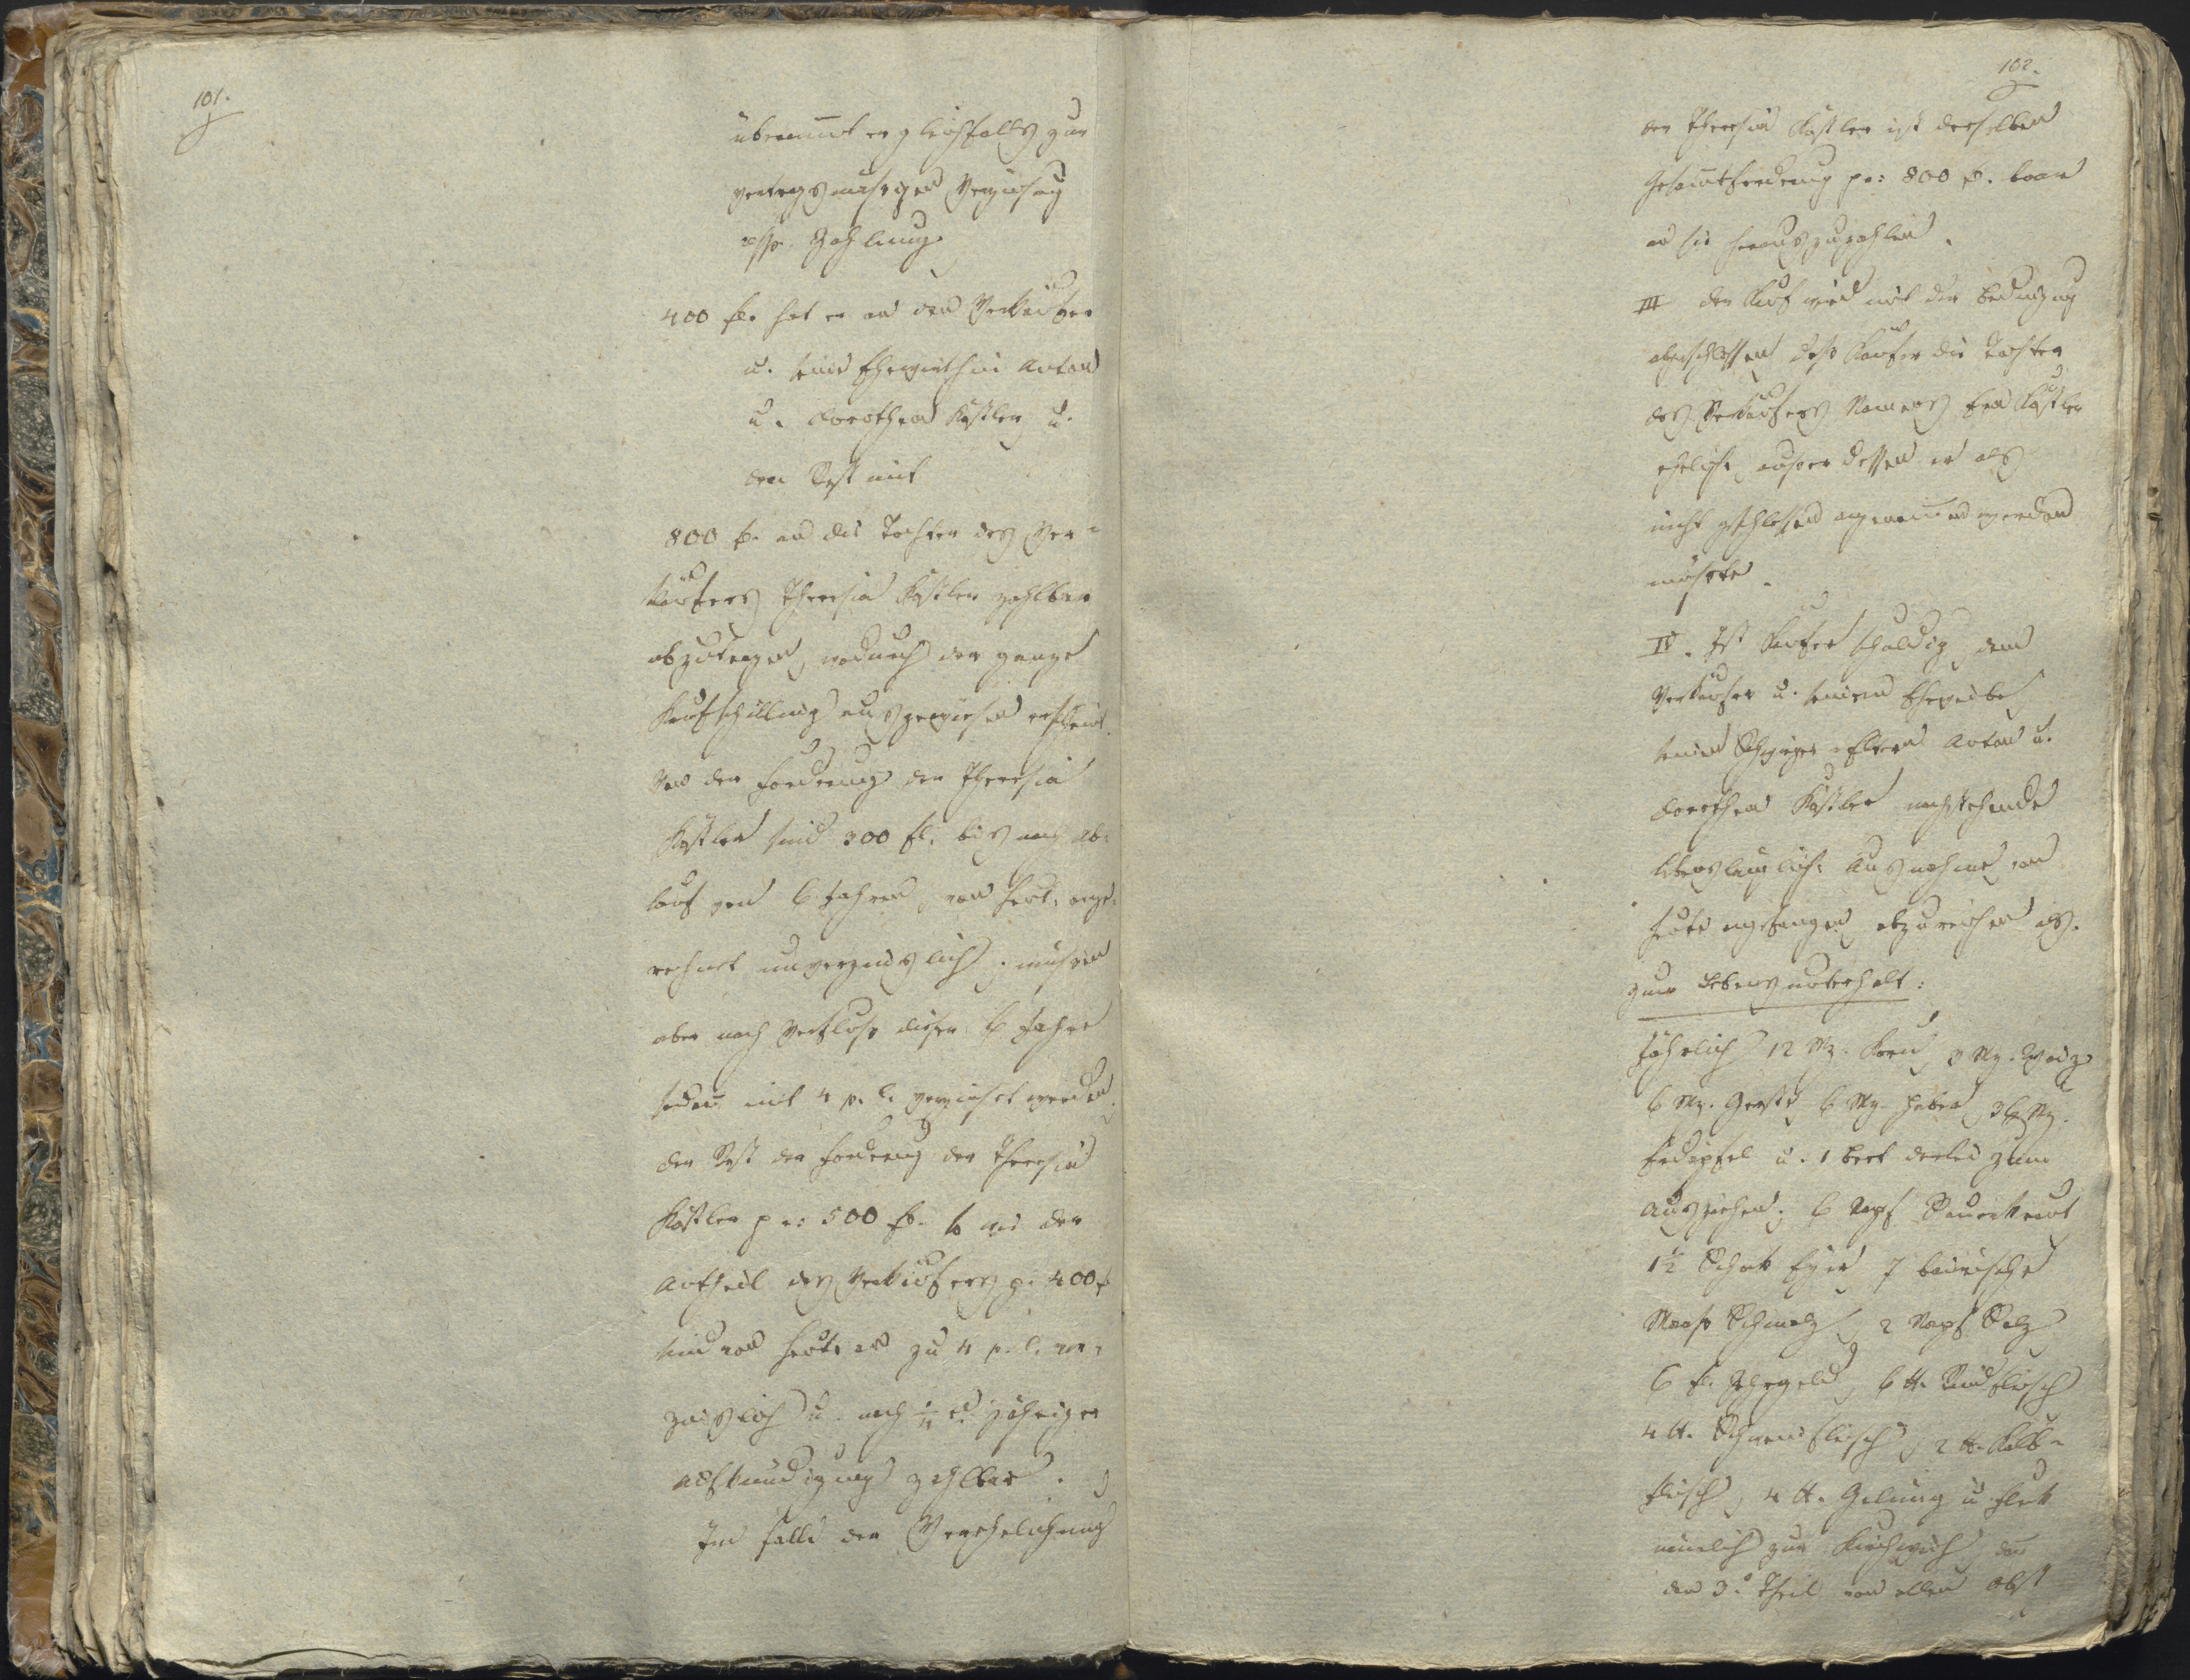 101.
übernimmt er gleichfalls zur
vertragsmäsigen Verzinsung
resp. Zahlung.
400 fl. hat er an den Verkäufer
u. seine Ehewirthin Anton
u. Dorothea Kastler u.
den Rest mit
800 fl. an die Tochter des Ver=
käufers Theresia Kastler zahlbar
abzutragen, wodurch der ganze
Kaufschilling ausgewiesen erscheint.
Von der Forderung der Theresia
Kastler sind 300 fl. bis nach Ab=
lauf von 6 Jahren, von heute ange=
rechnet unverzinslich, müssen
aber nach Verfluß dieser 6 Jahre
sodann mit 4 p. C. verzinset werden.
Der Rest der Forderung der Theresia
Kastler pr: 500 fl. so wie der
Antheil des Verkäufers p. 400 f
sind von heute an zu 4 p. C. ver=
zinslich u. nach 1/4 jähriger
Aufkündigung zahlbar.
Im Falle der Verehelichung
102.
der Theresia Kastler ist derselben
Gesammtforderung pr: 800 fl. baar
an sie herauszuzahlen.
III Der Kauf wird mit der Bedingung
abgeschlossen daß Käufer die Tochter
des Verkäufers Namens Kastler
eheliche, außer dessen er als
nicht geschlossen angenommen werden
müßte.
IV. Ist Käufer schuldig, dem
Verkäufer u. seinem Eheweibe
seinen Schwieger=Eltern Anton u.
Dorothea Kastler nachstehende
lebenslängliche Ausnahme von
heute angefangen abzureichen als.
zum Lebensunterhalt:
Jährlich 12 Mz. Korn, 3 Mz. Waiz
6 Mz. Gerste 6 Mz. Haber, 36 Mz.
Erdäpfel u. 1 Beet derlei zum
Ausziehen; 6 Napf Sauerkraut
1 1/2 Schok Eyer 7 bairische
Maaß Schmalz, 2 Napf Salz
6 fl. Zehrgeld, 6 tt. Rindfleisch
4 tt. Schweinfleisch, 2 tt. Kalb=
fleisch, 4 tt. Gelüng u. Flek
nämlich zur Kirchweih, dan
den 3. Theil von allen Obst